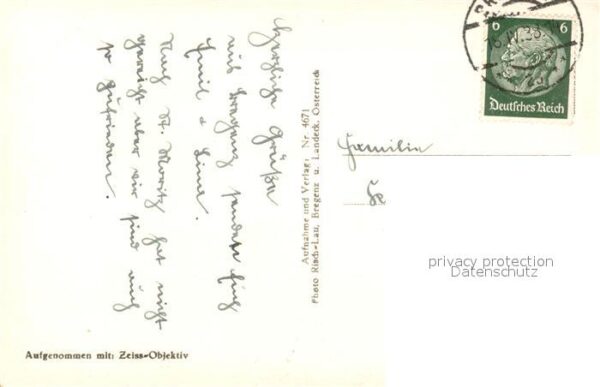 Herzliche Grüße
aus Bregenz senden Euch
Emil + Lina.
Nach St. Moritz hat nicht
gereicht aber wir sind auch
so zufrieden.
Aufnahme und Verlag: Nr. 4671
Photo Risch-Lau, Bregenz u. Landeck, Österreich
Familie
6 6
Deutsches Reich
privacy protection
Datenschutz
Aufgenommen mit: Zeiss-Objektiv